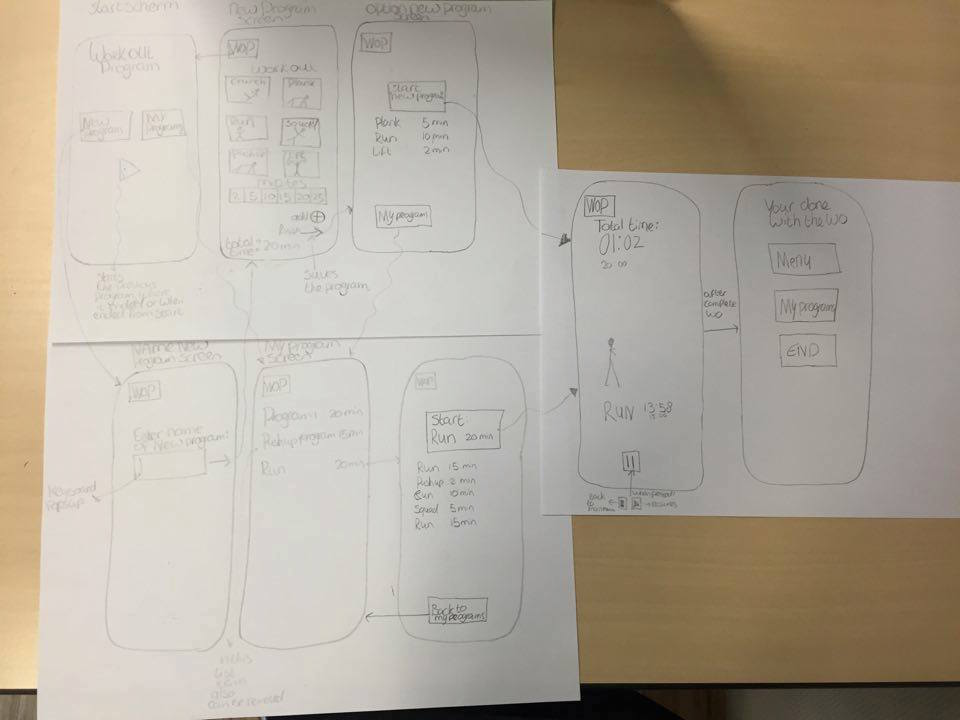 Startscherm
Workout
Program
New
program
My
program
Starts
the previous
program where
ended from start
New Program
Screen
WOP
Workout
Crunch
Plank
Run
Squad
Pushup
Lift
minutes
2 5 10 15 20 25
add
Run
total
time: 20 min
Saves
the program
option new program
screen
WOP
Start
new program
Plank 5 min
Run 10 min
Lift 2 min
My program
Name New
Program Screen
WOP
Enter name
of New program:
Keyboard
Popsup
My program
Screen
WOP
Program 1 20 min
Pushup program 15 min
Run 20 min
also
can be removed
WOP
Start:
Run 20 min
Run 15 min
Pushup 2 min
Run 10 min
Squad 5 min
Run 15 min
Back to
my programs
WOP
Total time:
01:02
20:00
RUN 13:58
15:00
when pressed
Back
to
→ resumes
after
complete
WO
Your done
with the WO
Menu
My program
END